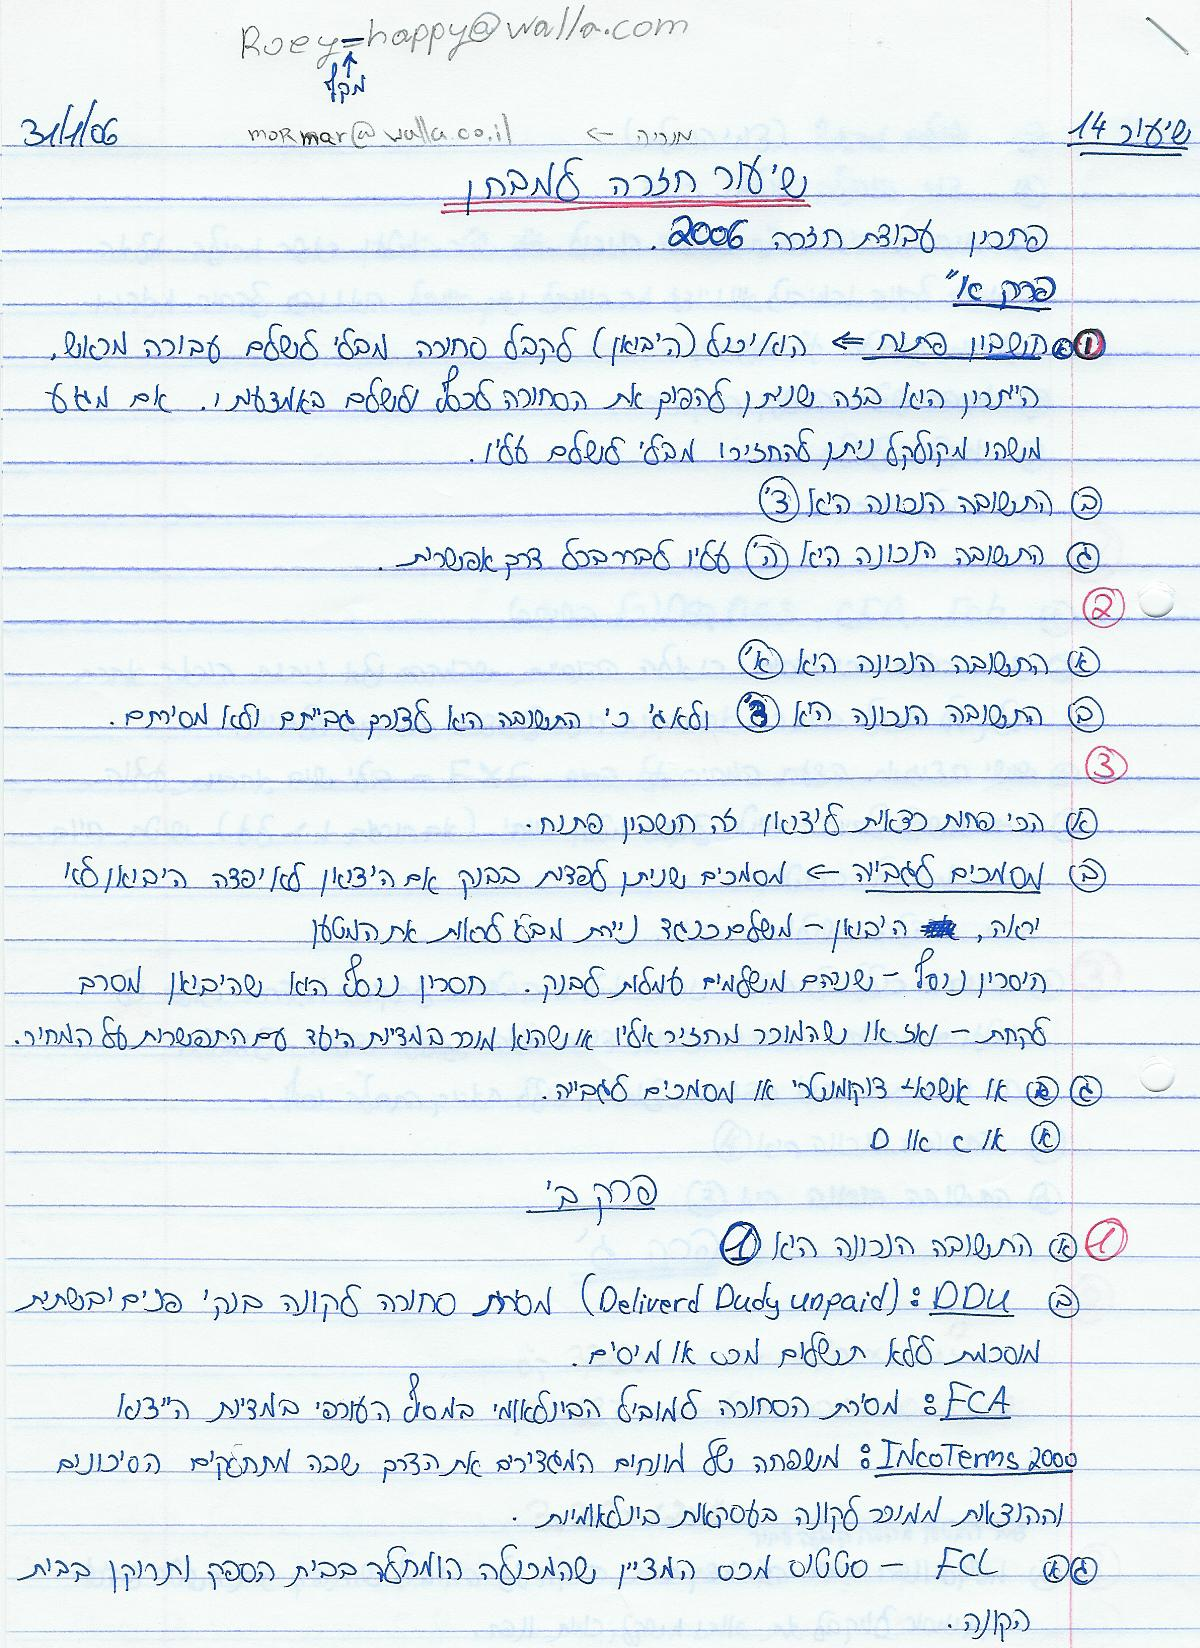 Roey=happy@walla.com
מקף
שיעור 14 מוריה ← mormar@walla.co.il 31/1/06
שיעור חזרה למבחן
פתרון עבודת חזרה 2006.
פרק א'
① א חשבון פתוח ← הוא יכול (היבואן) לקבל סחורה מבלי לשלם עבורה מראש,
היתרון הוא בזה שניתן להפוך את הסחורה לכסף ולשלם באמצעותו. אם מגיע
משהו מקולקל ניתן להחזירו מבלי לשלם עליו.
ב התשובה הנכונה היא ד'
ג התשובה הנכונה היא ה' עליו לברר בכל דרך אפשרית.
②
א התשובה הנכונה היא א'
ב התשובה הנכונה היא ולא ג' כי התשובה היא לצורך גבייתם ולא מסירתם.
③
א הכי פחות כדאית ליצואן זה חשבון פתוח.
ב מסמכים לגביה ← מסמכים שניתן לפדות בבנק אם היצואן לא יפדה היבואן לא
יראה, היבואן – משלם כנגד ניירת מבלי לראות את המטען
חיסרון נוסף – שניהם משלמים עמלות לבנק. חסרון נוסף הוא שהיבואן מסרב
לקחת – ואז או שהמוכר מחזיר אליו או שהוא מוכר במדינת היעד עם התפשרות על המחיר.
ג ב או אשראי דוקומנטרי או מסמכים לגבייה.
א או ג או D
פרק ב'
① א התשובה הנכונה היא 1
ב DDU: (Deliverd Dudy unpaid) מסירת סחורה לקונה בנק' פנים יבשתית
מוסכמת ללא תשלום מכס או מיסים.
FCA: מסירת הסחורה למוביל הבינלאומי במסוף העורפי במדינת הייצוא
IncoTerms 2000: משפחה של מונחים המגדירים את הדרך שבה מתחלקים הסיכונים
וההוצאות ממוכר לקונה בעסקאות בינלאומיות.
ג א FCL – סטטוס מכס המציין שהמכולה הומחלה בבית הספק ותרוקן בבית
הקונה.